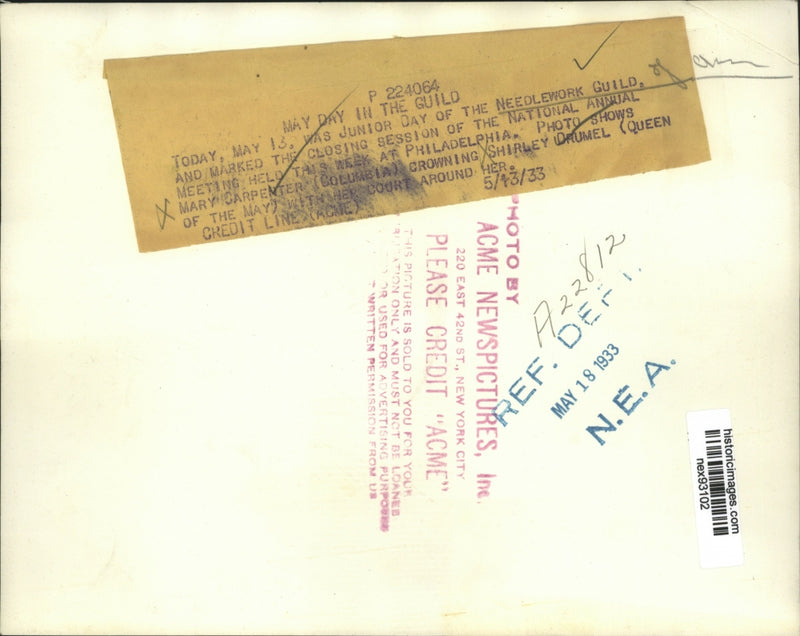 P 224064
MAY DAY IN THE GUILD
TODAY, MAY 13, WAS JUNIOR DAY OF THE NEEDLEWORK GUILD,
AND MARKED THE CLOSING SESSION OF THE NATIONAL ANNUAL
MEETING HELD THIS WEEK AT PHILADELPHIA. PHOTO SHOWS
MARY CARPENTER (COLUMBIA) CROWNING SHIRLEY DRUMEL (QUEEN
OF THE MAY) WITH HER COURT AROUND HER.
CREDIT LINE (ACME) 5/13/33
PHOTO BY
ACME NEWSPICTURES, Inc.
220 EAST 42ND ST., NEW YORK CITY
PLEASE CREDIT "ACME"
THIS PICTURE IS SOLD TO YOU FOR YOUR
ONLY AND MUST NOT BE LOANED
OR USED FOR ADVERTISING PURPOSES
WRITTEN PERMISSION FROM US
A22812
REF. DEPT.
MAY 18 1933
N.E.A.
historicimages.com
nex93102